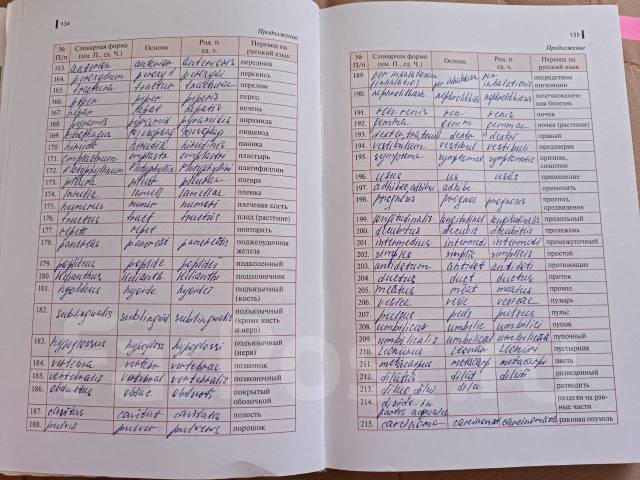 134
Продолжение
№ П/п Словарная форма (им. П., ед. Ч.) Основа Род. п. ед. ч. Перевод на русский язык
163. anterior anterior anterioris передний
164. peroxydum peroxyd peroxydi перекись
165. fractura fractur fracturae перелом
166. piper piper piperis перец
167. hepar hepat hepatis печень
168. pyramis pyramid pyramidis пирамида
169. oesophagus oesophag oesophagi пищевод
170. hirudo hirudin hirudinis пиявка
171. emplastrum emplastr emplastri пластырь
172. Platyphyllinum Platyphyllin Platyphyllini платифиллин
173. pleura pleur pleurae плевра
174. lamella lamell lamellae пленка
175. humerus humer humeri плечевая кость
176. fructus fruct fructus плод (растение)
177. repete repet повторять
178. pancreas pancreat pancreatis поджелудочная железа
179. popliteus poplite poplitei подколенный
180. Helianthus Helianth Helianthi подсолнечник
181. hyoideus hyoide hyoidei подъязычный (кость)
182. sublingualis sublingual sublingualis подъязычный (кроме кость и нерв)
183. hypoglossus hypogloss hypoglossi подъязычный (нерв)
184. vertebra vertebr vertebrae позвонок
185. vertebralis vertebral vertebralis позвоночный
186. obductus obduc obducti покрытый оболочкой
187. cavitas cavitat cavitatis полость
188. pulvis pulver pulveris порошок
135
Продолжение
№ П/п Словарная форма (им. П., ед. Ч.) Основа Род. п. ед. ч. Перевод на русский язык
189. per inhalationem посредством ингаляции
190. nephrolithiasis почечнокаменная болезнь
191. ren renis ren renis почка
192. gemma gemm gemmae почка (растения)
193. dexter, tra, trum dextr dextri правый
194. vestibulum vestibul vestibuli преддверие
195. symptoma symptomat symptomatis признак, симптом
196. usus us usus применение
197. adhibeo, adhibere adhibe применять
198. prognosis prognos prognosis прогноз, предвидение
199. longitudinalis longitudinal longitudinalis продольный
200. decubitus decubit пролежень
201. intermedius intermedi intermedii промежуточный
202. simplex simplic simplicis простой
203. antidotum antidot antidoti противоядие
204. ductus duct ductus проток
205. meatus meat meatus проход
206. vesica vesic vesicae пузырь
207. pulsus puls pulsus пульс
208. umbilicus umbilic umbilici пупок
209. umbilicalis umbilical umbilicalis пупочный
210. Leonurus Leonur Leonuri пустырник
211. metacarpus metacarp metacarpi пясть
212. dilutus dilut diluti разведенный
213. dilue разводить
214. divide in partes aequales раздели на равные части
215. carcinoma carcinomat carcinomatis раковая опухоль